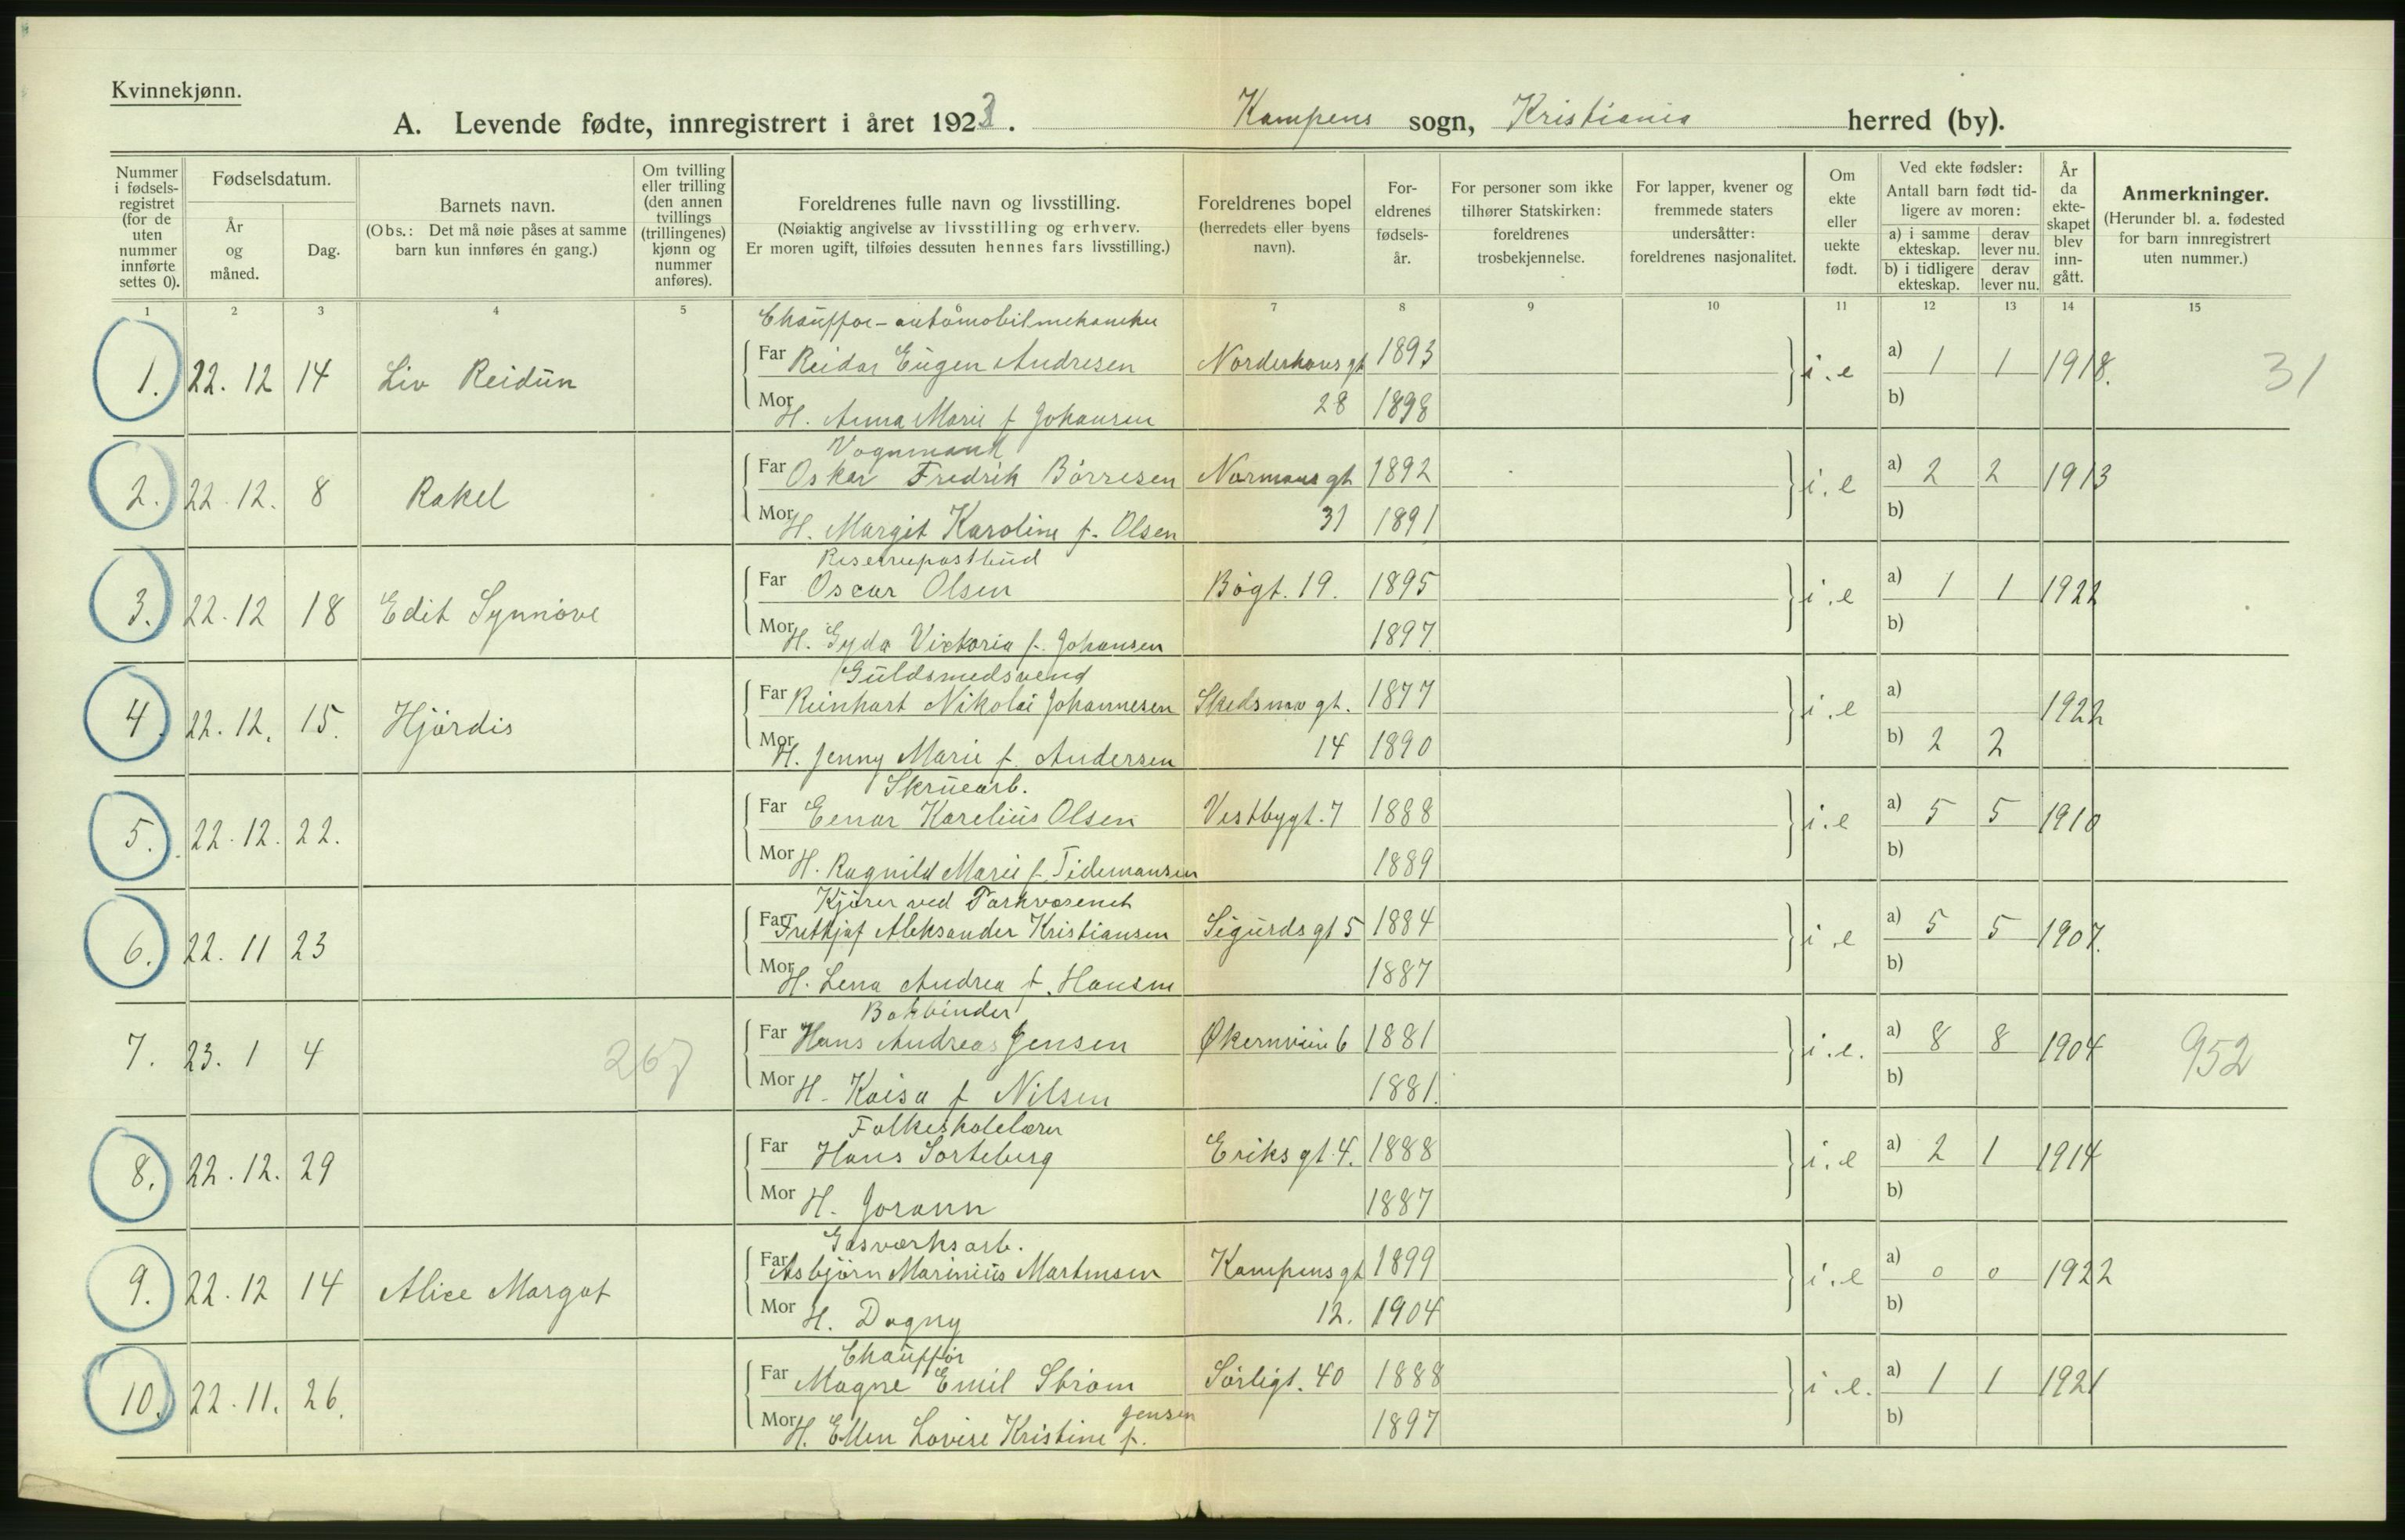 Kvinnekjønn.
A. Levende fødte, innregistrert i året 1923. Kampens sogn, Kristiania herred (by).
Nummer i fødsels-registret (for de uten nummer innførte settes 0).
Fødselsdatum.
År og måned.
Dag.
Barnets navn.
(Obs.: Det må nøie påses at samme barn kun innføres én gang.)
Om tvilling eller trilling (den annen tvillings (trillingenes) kjønn og nummer anføres).
Foreldrenes fulle navn og livsstilling.
(Nøiaktig angivelse av livsstilling og erhverv. Er moren ugift, tilføies dessuten hennes fars livsstilling.)
Foreldrenes bopel
(herredets eller byens navn).
For-eldrenes fødsels-år.
For personer som ikke tilhører Statskirken: foreldrenes trosbekjennelse.
For lapper, kvener og fremmede staters undersåtter: foreldrenes nasjonalitet.
Om ekte eller uekte født.
Ved ekte fødsler:
Antall barn født tid-ligere av moren:
a) i samme ekteskap. derav lever nu.
b) i tidligere ekteskap. derav lever nu.
År da ekte-skapet blev inn-gått.
Anmerkninger.
(Herunder bl. a. fødested for barn innregistrert uten nummer.)
1 2 3 4 5 6 7 8 9 10 11 12 13 14 15
Chauffør-automobilmekaniker
1. 22. 12 14 Liv Reidun Far Reidar Eugen Andresen Norderhovs gt 1893 i. e a) 1 1 1918. 31
Mor H. Anna Marie f Johansen 28 1898 b)
Vognmann
2. 22. 12. 8 Rakel Far Oskar Fredrik Börresen Normans gt 1892 i. e a) 2 2 1913
Mor H. Margit Karoline f. Olsen 31 1891 b)
Reservepostbud
3. 22. 12 18 Edit Synnöve Far Oscar Olsen Bögt. 19. 1895 i. e a) 1 1 1922
Mor H. Gyda Victoria f. Johansen 1897 b)
Guldsmedsvend
4. 22. 12. 15. Hjördis Far Reinhart Nikolai Johannesen Skedsmo gt. 1877 i. e a) 1922
Mor H. Jenny Marie f. Andersen 14 1890 b) 2 2
Skruearb.
5. 22. 12. 22. Far Einar Karelius Olsen Vestbygt. 7 1888 i. e a) 5 5 1910
Mor H. Ragnild Marie f. Tidemansen 1889 b)
Kjörer ved Parkvæsenet
6. 22. 11 23 Far Fritkjof Aleksander Kristiansen Sigurds gt 5 1884 i. e a) 5 5 1907.
Mor H. Lena Andrea f. Hansen 1887 b)
Bokbinder
7. 23. 1 4 267 Far Hans Andreas Jensen Økernveien 6 1881 i. e. a) 8 8 1904 952
Mor H. Kaisa f Nilsen 1881. b)
Folkeskolelærer
8. 22. 12. 29 Far Hans Sorteberg Eriks gt. 4. 1888 i. e a) 2 1 1914
Mor H. Jorann 1887 b)
Gasværksarb.
9. 22. 12 14 Alice Margot Far Asbjörn Marinius Martinsen Kampens gt 1899 i. e a) 0 0 1922
Mor H. Dagny 12. 1904 b)
Chauffør
10. 22. 11. 26. Far Magne Emil Ström Sörligt. 40 1888 i. e. a) 1 1 1921
Mor H. Ellen Lovise Kristine f. Jensen 1897 b)